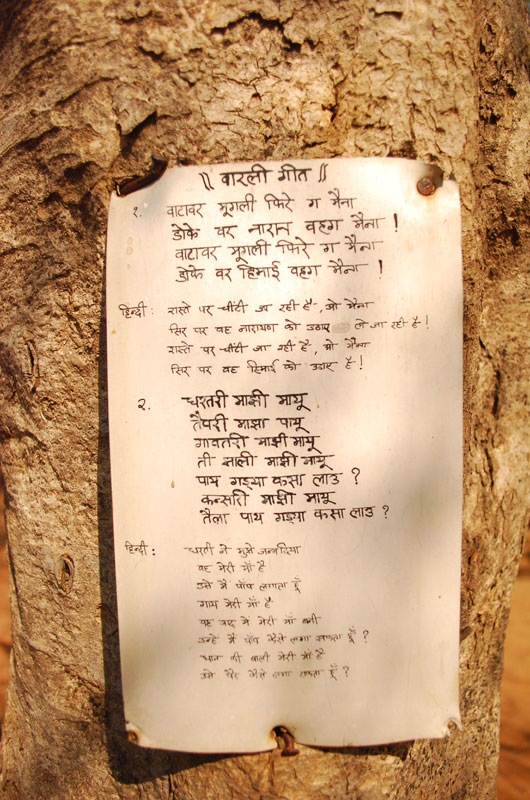 || वारली गीत ||
१. वाटावर मूगली फिरे ग मैना
डोके वर नारान वहग मैना !
वाटावर मूगली फिरे ग मैना
डोके वर हिमाई वहग मैना !
हिन्दी : रास्ते पर चींटी जा रही है, ओ मैना
सिर पर वह नारायण को उठाए ले जा रही है !
रास्ते पर चींटी जा रही है, ओ मैना
सिर पर वह हिमाई को उठाए है !
२. धरतरी माझी मायू
तैपरी माझा पायू
गावतरी माझी मायू
ती साली माझी मायू
पाय गइया कसा लाउ ?
कन्सारी माझी मायू
तैला पाय गइया कसा लाउ ?
हिन्दी : धरती ने मुझे जन्म दिया
वह मेरी माँ है
उसे मैं पाँव लगाता हूँ
गाय मेरी माँ है
वह मेरी माँ बनी
उन्हें मैं पाँव कैसे लगा सकता हूँ ?
धान की बाली मेरी माँ है
उसे पैर कैसे लगा सकता हूँ ?